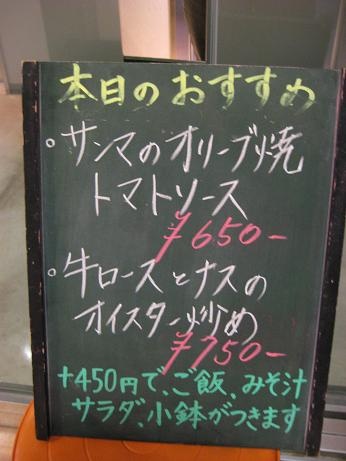 本日のおすすめ
。サンマのオリーブ焼
トマトソース
¥650-
。牛ロースとナスの
オイスター炒め
¥750-
+450円で、ご飯、みそ汁
サラダ、小鉢がつきます